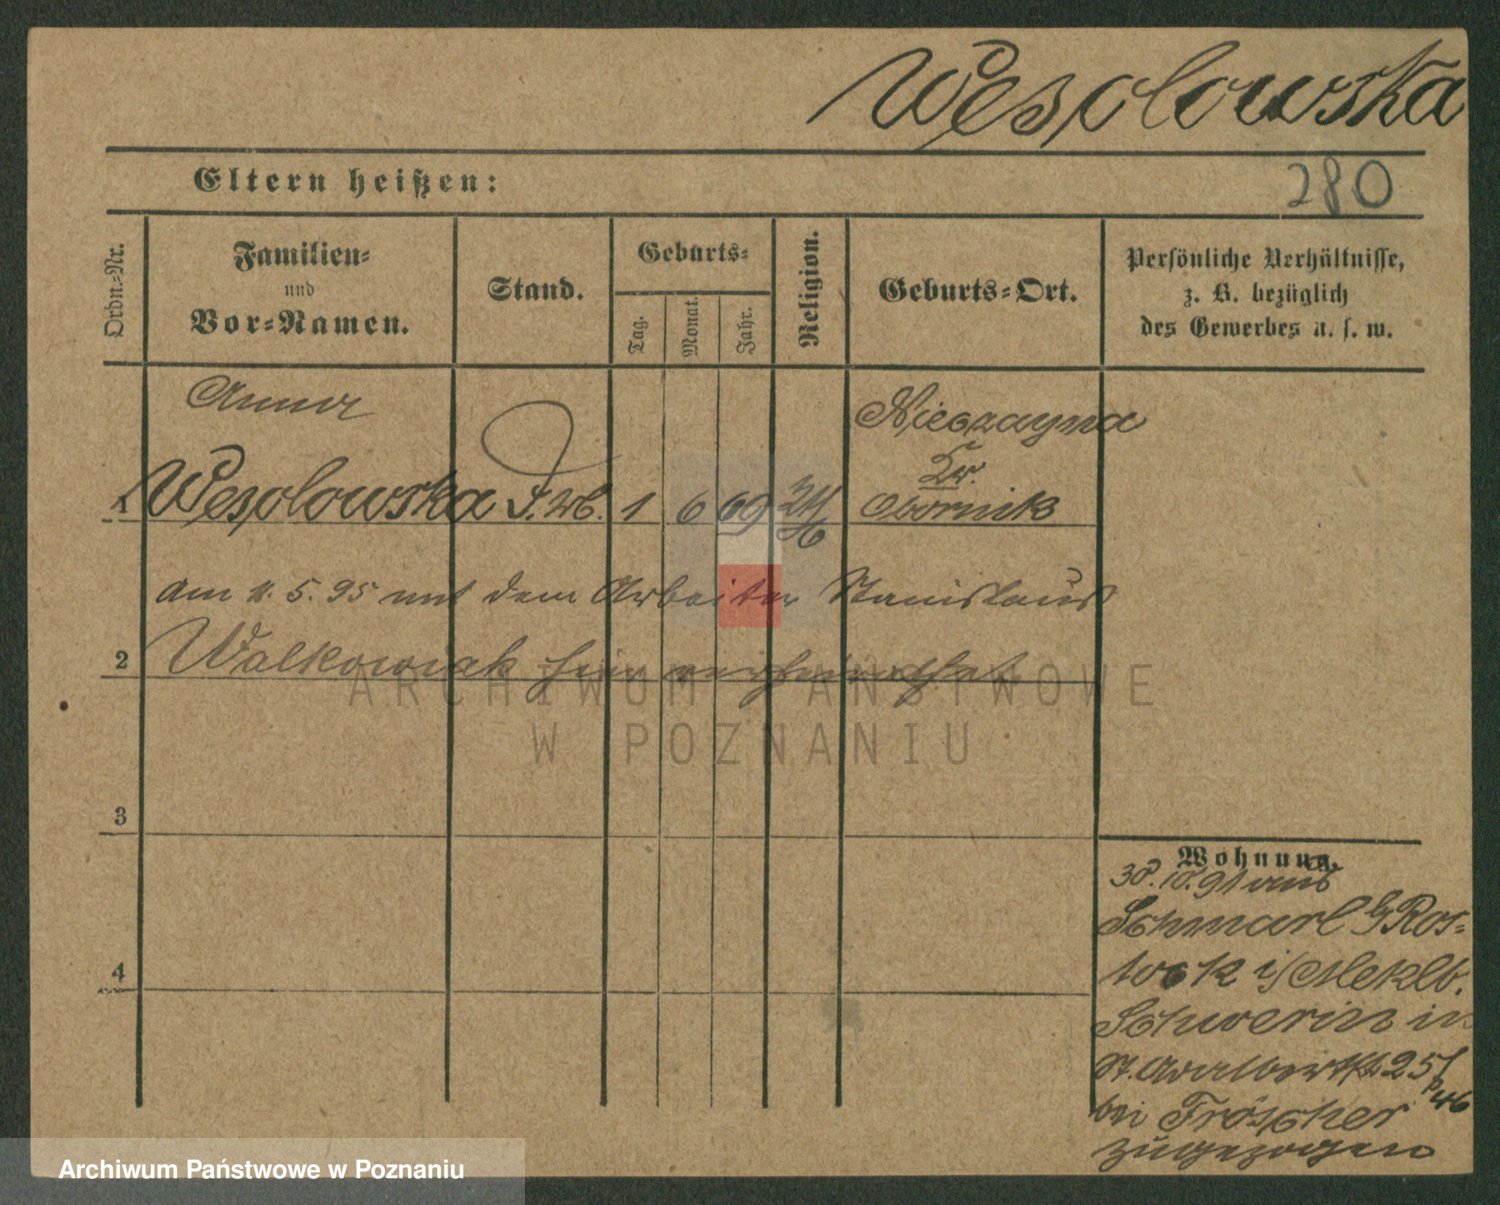 Wesolowska
Eltern heißen:
280
Ordn.-Nr.
Familien-
und
Vor-Namen.
Stand.
Geburts-
Tag.
Monat.
Jahr.
Religion.
Geburts-Ort.
Persönliche Verhältnisse,
z. B. bezüglich
des Gewerbes u. s. w.
Anna
Nieszayna
Kr.
1 Wesolowska 1 6 69 Obornik
am 11. 5. 95 mit dem Arbeiter Stanislaus
2 Walkowiak hier verheirathet
3
4
Wohnung.
30. 10. 91 aus
Schmarl b/Ros-
tock i/Meklb.
Schwerin in
St. Adalbertstr 25/
bei Fröscher
zugezogen
ARCHIWUM PAŃSTWOWE
W POZNANIU
Archiwum Państwowe w Poznaniu